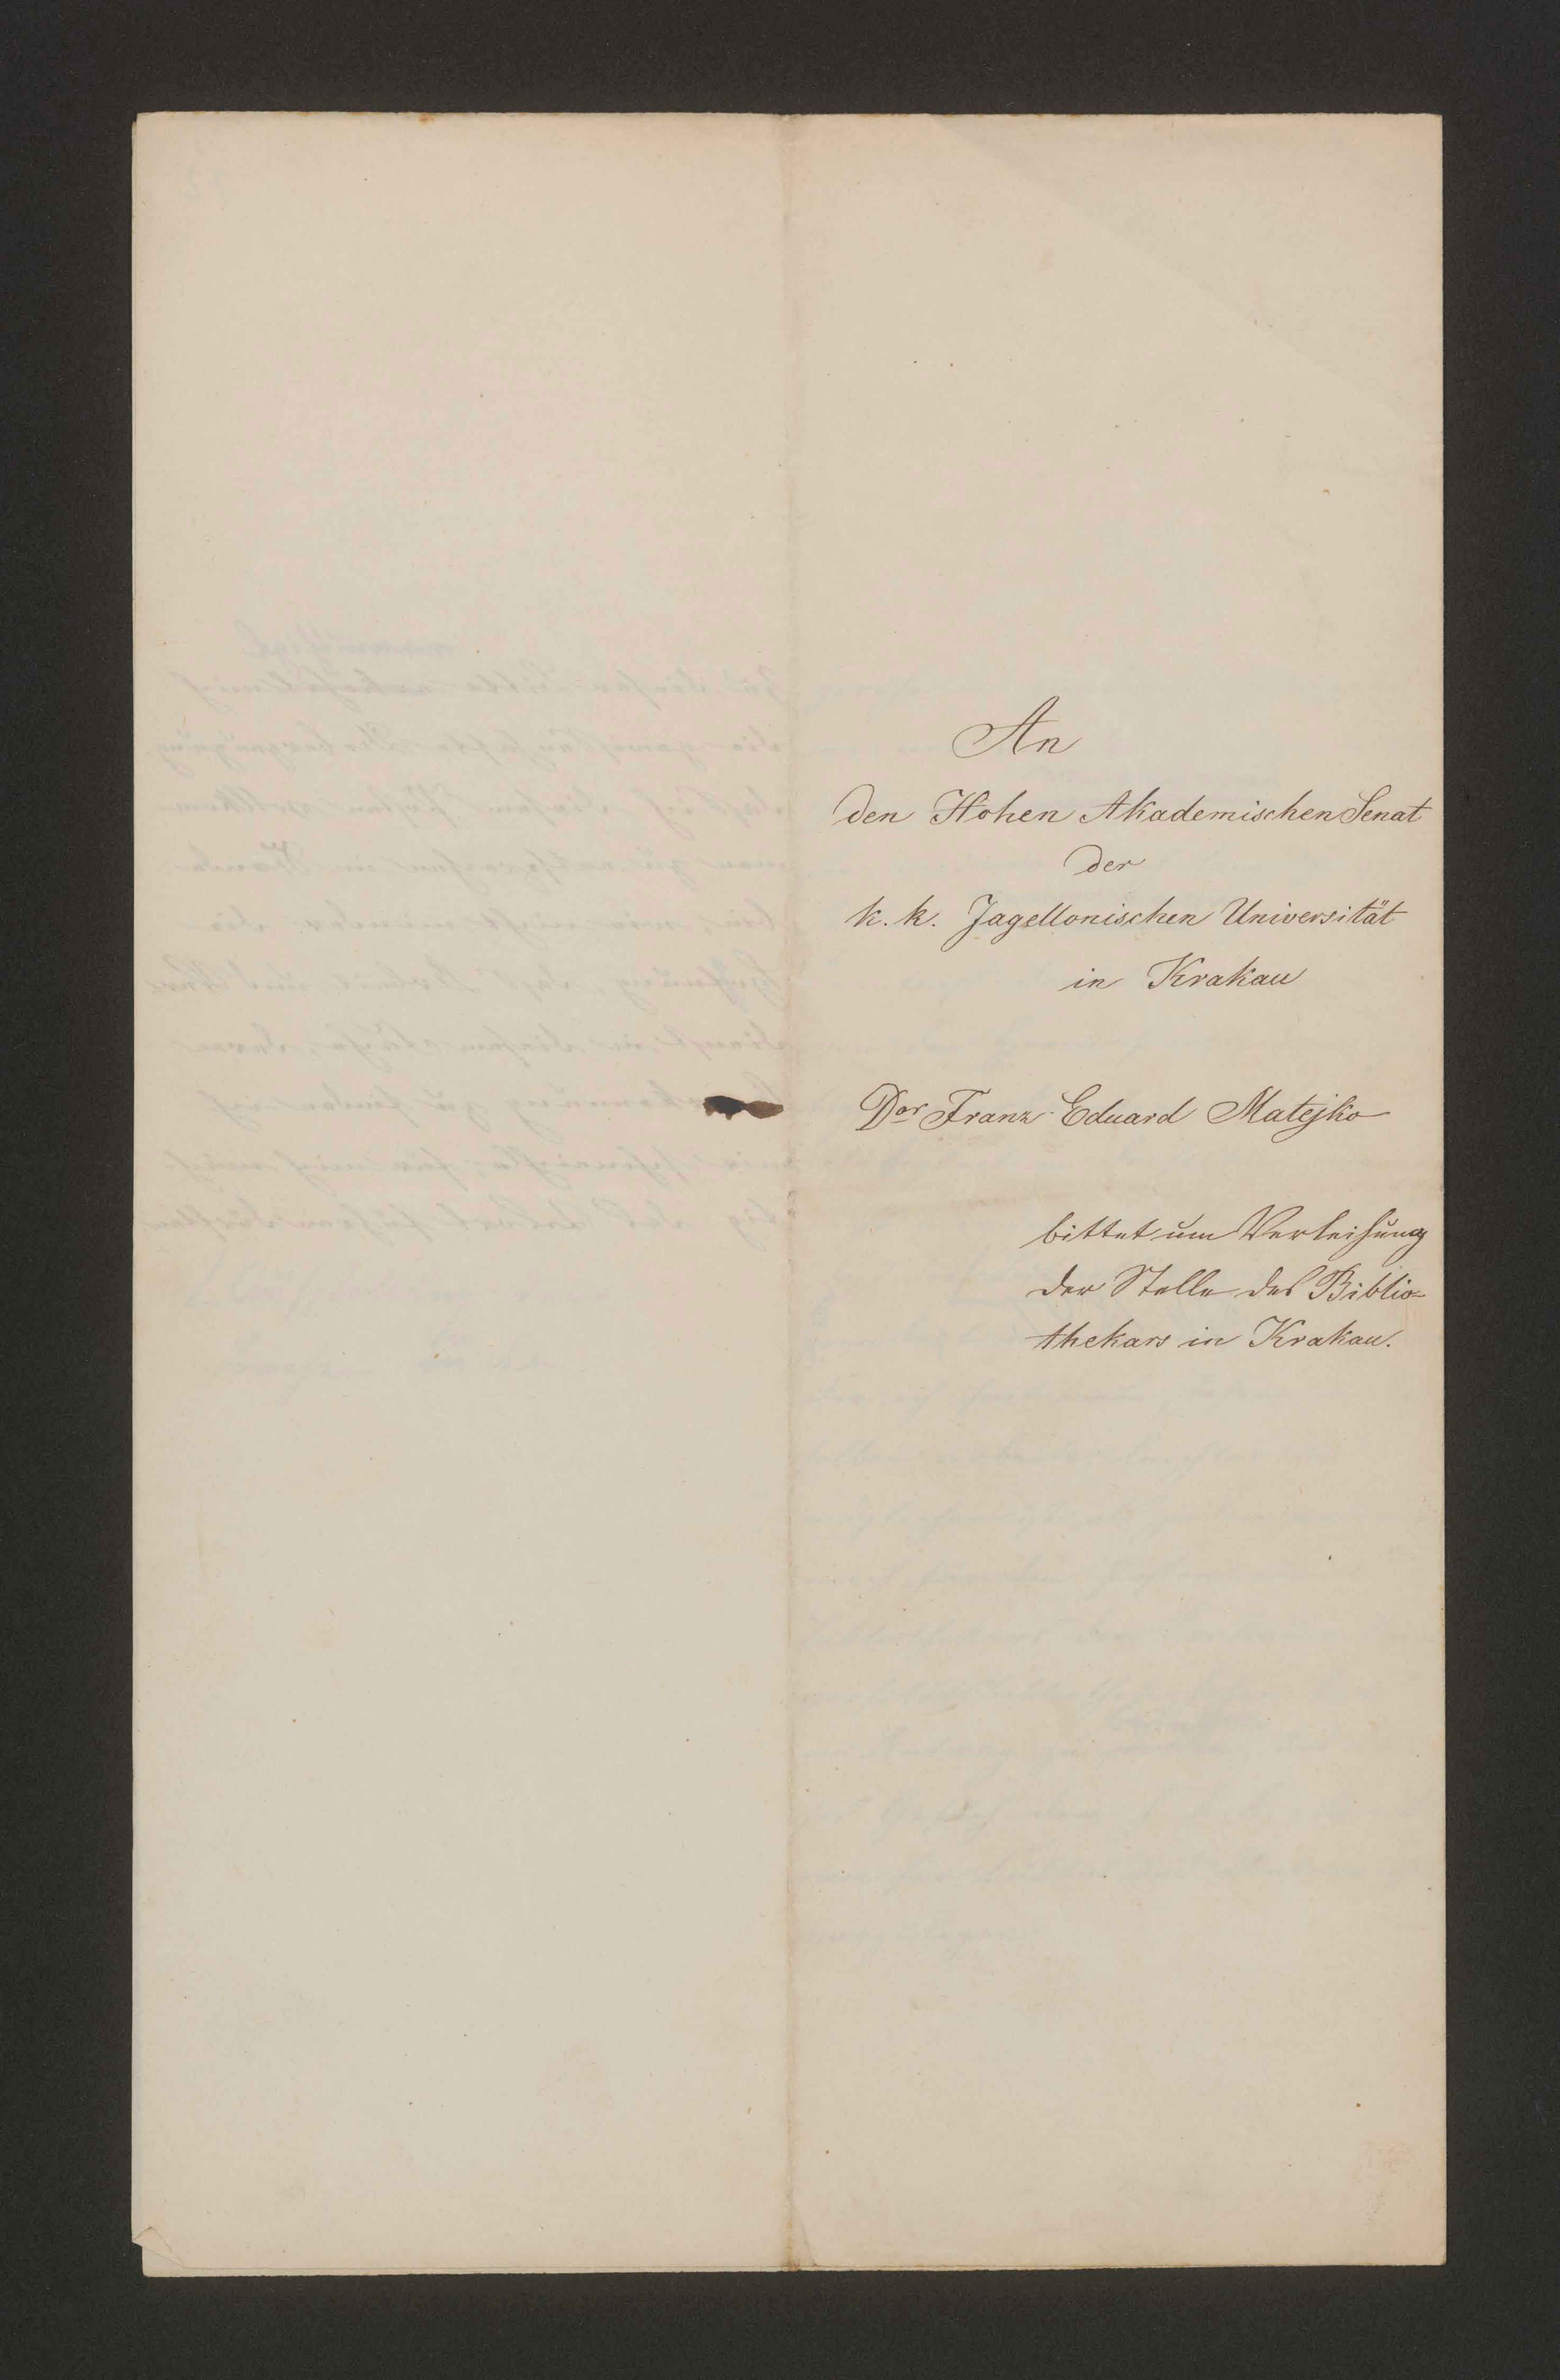 An
den Hohen Akademischen Senat
der
k. k. Jagellonischen Universität
in Krakau
Dor Franz Eduard Matejko
bittet um Verleihung
der Stelle des Biblio-
thekars in Krakau.